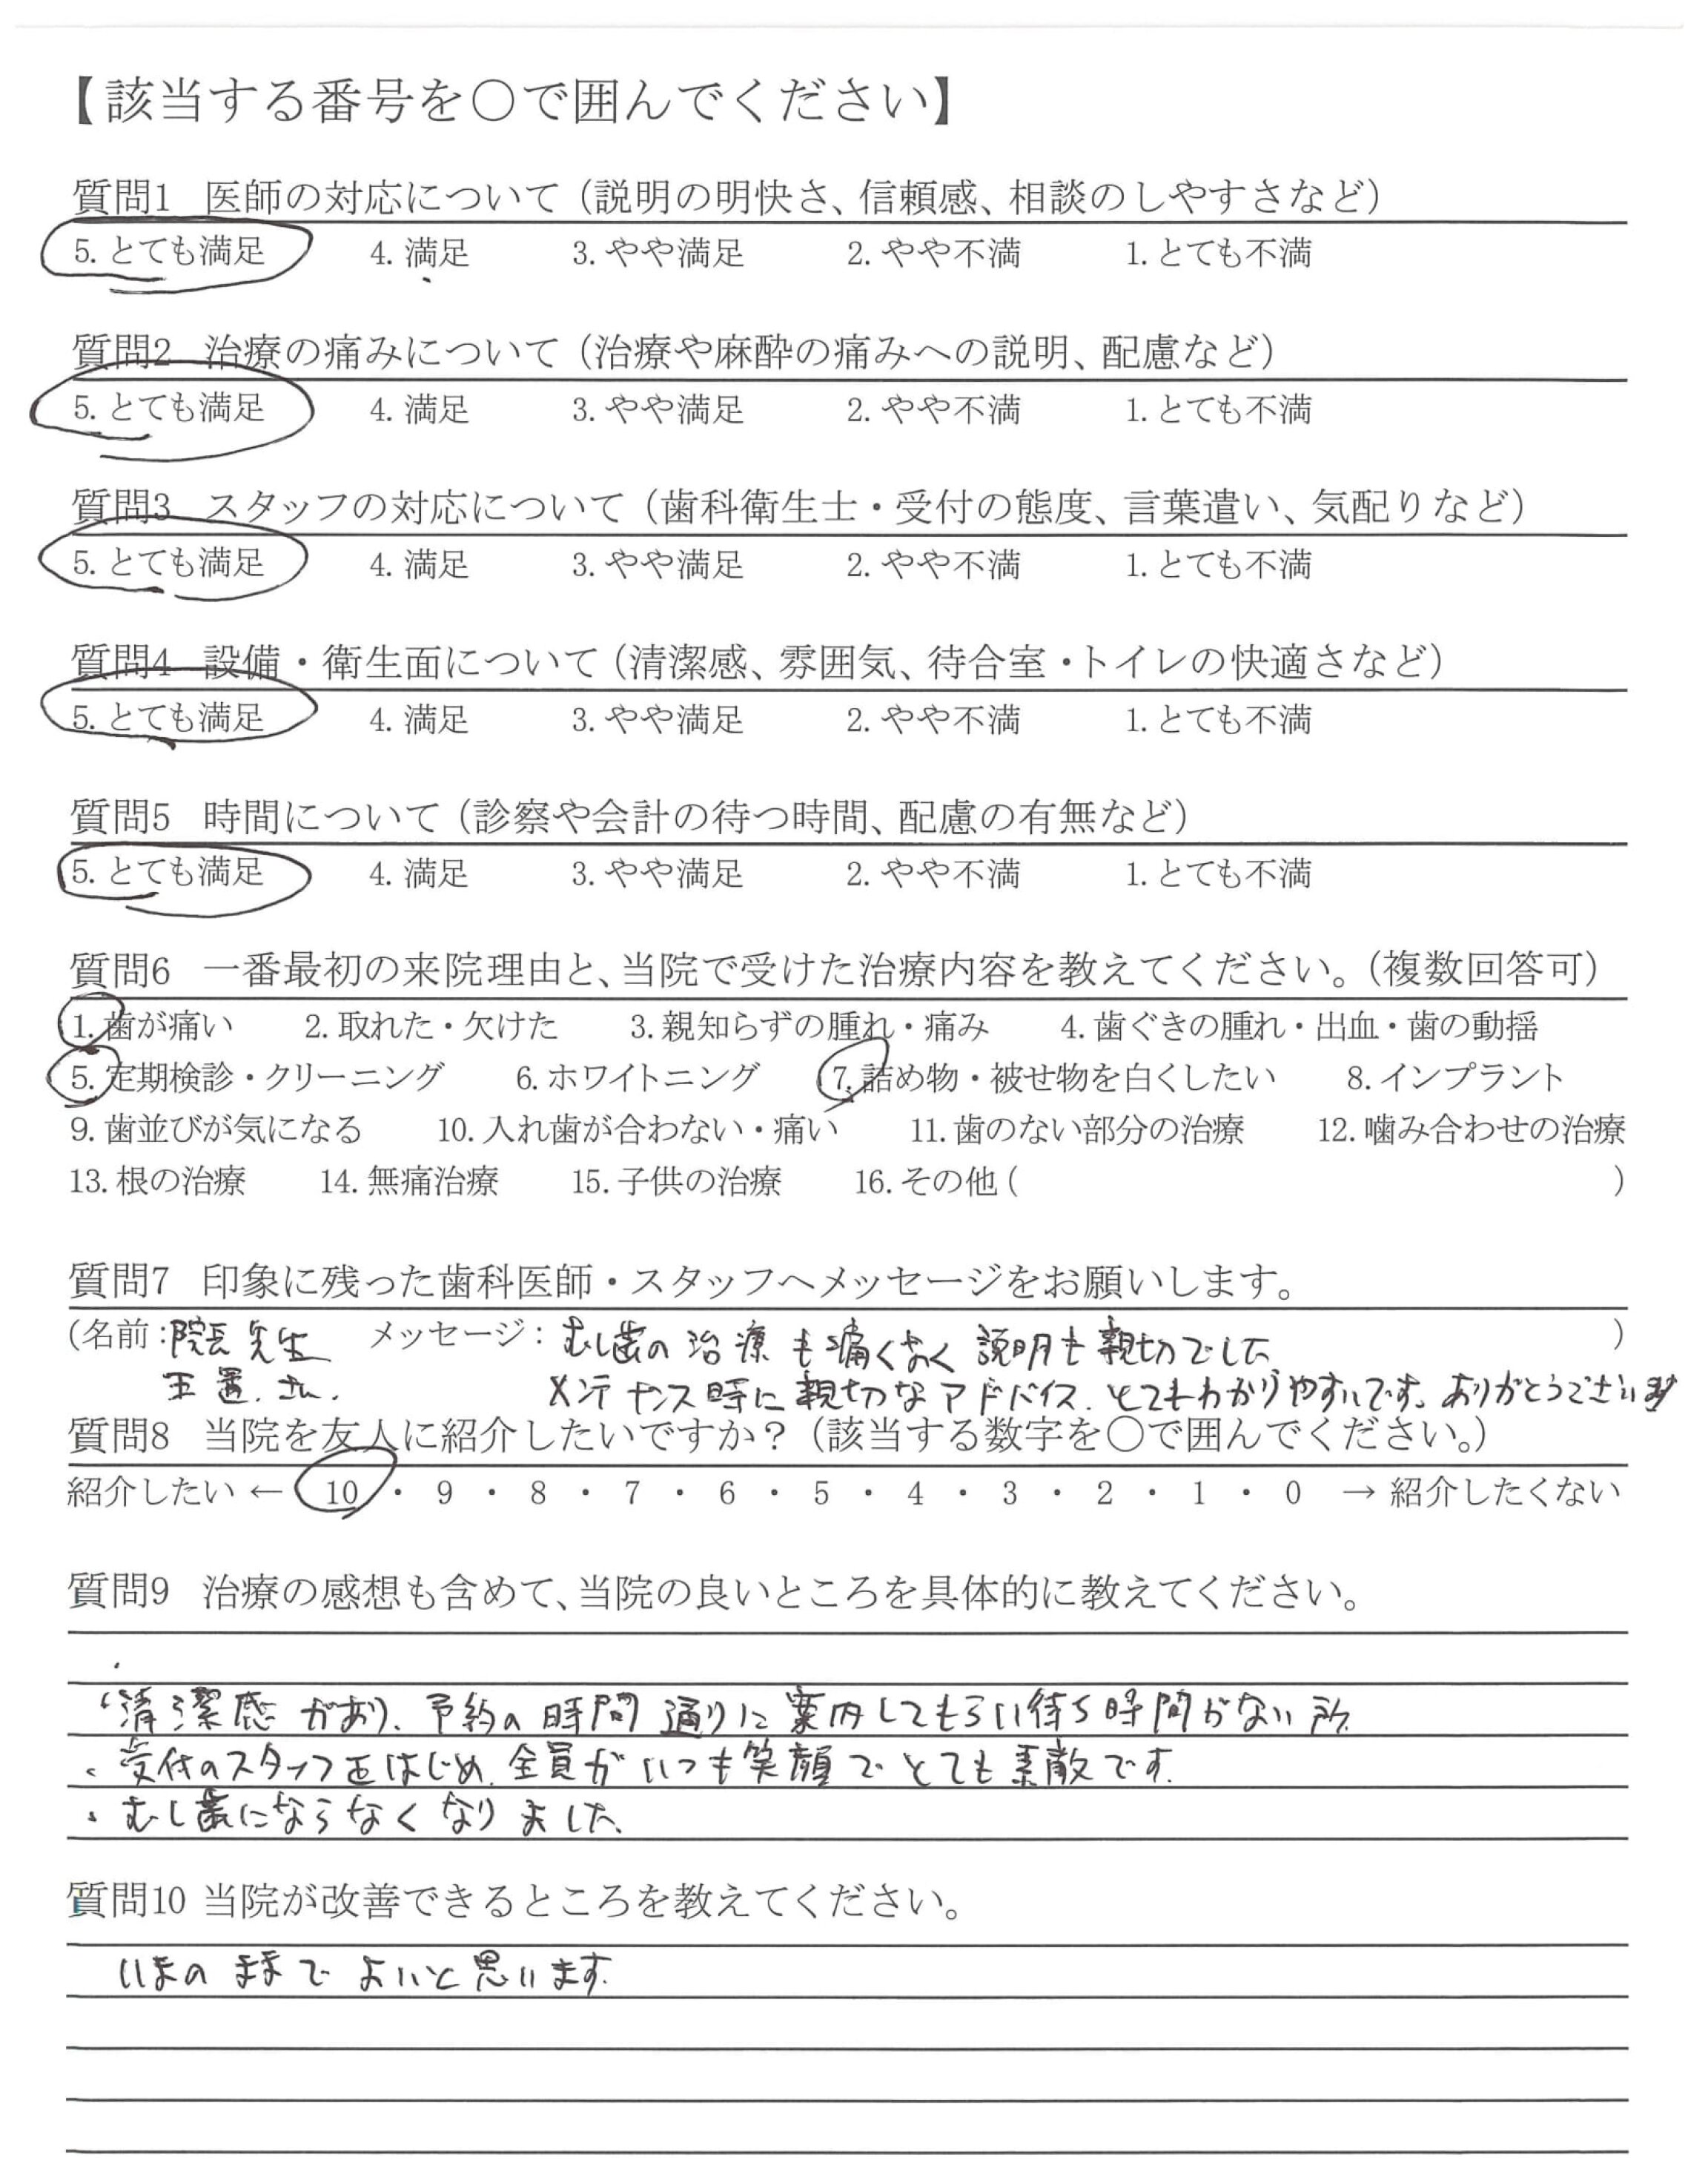 【該当する番号を○で囲んでください】
質問1 医師の対応について（説明の明快さ、信頼感、相談のしやすさなど）
5. とても満足 4. 満足 3. やや満足 2. やや不満 1. とても不満
質問2 治療の痛みについて（治療や麻酔の痛みへの説明、配慮など）
5. とても満足 4. 満足 3. やや満足 2. やや不満 1. とても不満
質問3 スタッフの対応について（歯科衛生士・受付の態度、言葉遣い、気配りなど）
5. とても満足 4. 満足 3. やや満足 2. やや不満 1. とても不満
質問4 設備・衛生面について（清潔感、雰囲気、待合室・トイレの快適さなど）
5. とても満足 4. 満足 3. やや満足 2. やや不満 1. とても不満
質問5 時間について（診察や会計の待つ時間、配慮の有無など）
5. とても満足 4. 満足 3. やや満足 2. やや不満 1. とても不満
質問6 一番最初の来院理由と、当院で受けた治療内容を教えてください。（複数回答可）
1. 歯が痛い 2. 取れた・欠けた 3. 親知らずの腫れ・痛み 4. 歯ぐきの腫れ・出血・歯の動揺
5. 定期検診・クリーニング 6. ホワイトニング 7. 詰め物・被せ物を白くしたい 8. インプラント
9. 歯並びが気になる 10. 入れ歯が合わない・痛い 11. 歯のない部分の治療 12. 噛み合わせの治療
13. 根の治療 14. 無痛治療 15. 子供の治療 16. その他 ( )
質問7 印象に残った歯科医師・スタッフへメッセージをお願いします。
(名前：院長先生 メッセージ：むし歯の治療も痛くなく説明も親切でした )
玉置さん. メンテナンス時に親切なアドバイス. とてもわかりやすいです。ありがとうございます
質問8 当院を友人に紹介したいですか？（該当する数字を○で囲んでください。）
紹介したい ← 10 ・ 9 ・ 8 ・ 7 ・ 6 ・ 5 ・ 4 ・ 3 ・ 2 ・ 1 ・ 0 → 紹介したくない
質問9 治療の感想も含めて、当院の良いところを具体的に教えてください。
・清潔感があり、予約の時間通りに案内してもらい待ち時間がない所
・受付のスタッフをはじめ、全員がいつも笑顔でとても素敵です.
・むし歯にならなくなりました.
質問10 当院が改善できるところを教えてください。
いまのままでよいと思います.